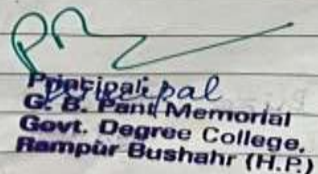 Principal
G. B. Pant Memorial
Govt. Degree College,
Rampur Bushahr (H.P.)